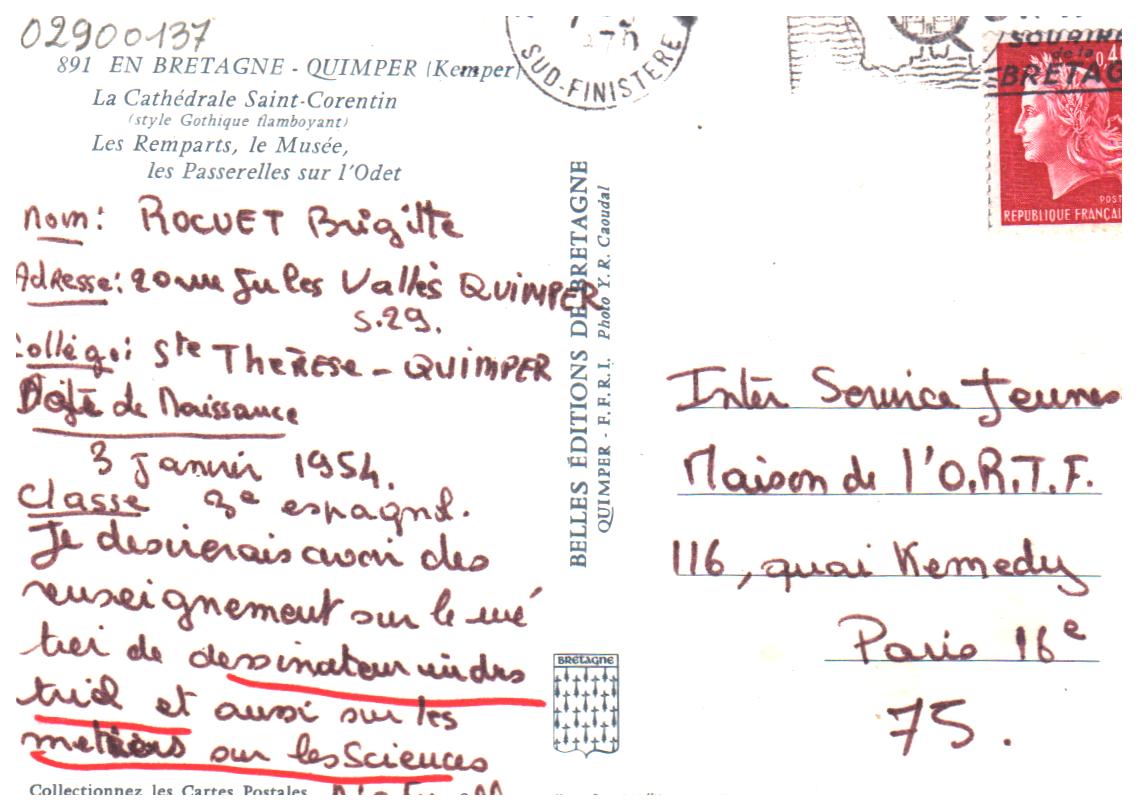 02900137
891 EN BRETAGNE - QUIMPER (Kemper)
La Cathédrale Saint-Corentin
(style Gothique flamboyant)
Les Remparts, le Musée,
les Passerelles sur l'Odet
Nom: ROCUET Brigitte
Adresse: 20 rue Jules Vallès QUIMPER
S.29.
Collège: Ste THÉRÈSE - QUIMPER
Date de Naissance
3 Janvier 1954.
Classe 3e espagnol.
Je desirerais avoir des
renseignement sur le mé
tier de dessinateur indus
triel et aussi sur les
metiers sur les Sciences
Collectionnez les Cartes Postales
BELLES ÉDITIONS DE BRETAGNE
QUIMPER - F.F.R.I. Photo Y.R. Caoudal
BRETAGNE
SUD-FINISTERE
SOURIRE
de la
BRETAG
0,40
POST
REPUBLIQUE FRANÇAI
Inter Service Jeunes
Maison de l'O.R.T.F.
116, quai Kennedy
Paris 16e
75.